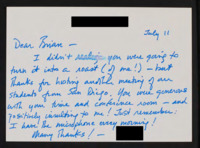 July 11
Dear Brian —
I didn't realize you were going to
turn it into a roast (of me!) — but
thanks for hosting another meeting of our
students from San Diego. You were generous
with your time and conference room — and
positively insulting to me! Just remember:
I have the microphone every morning!
Many Thanks! —